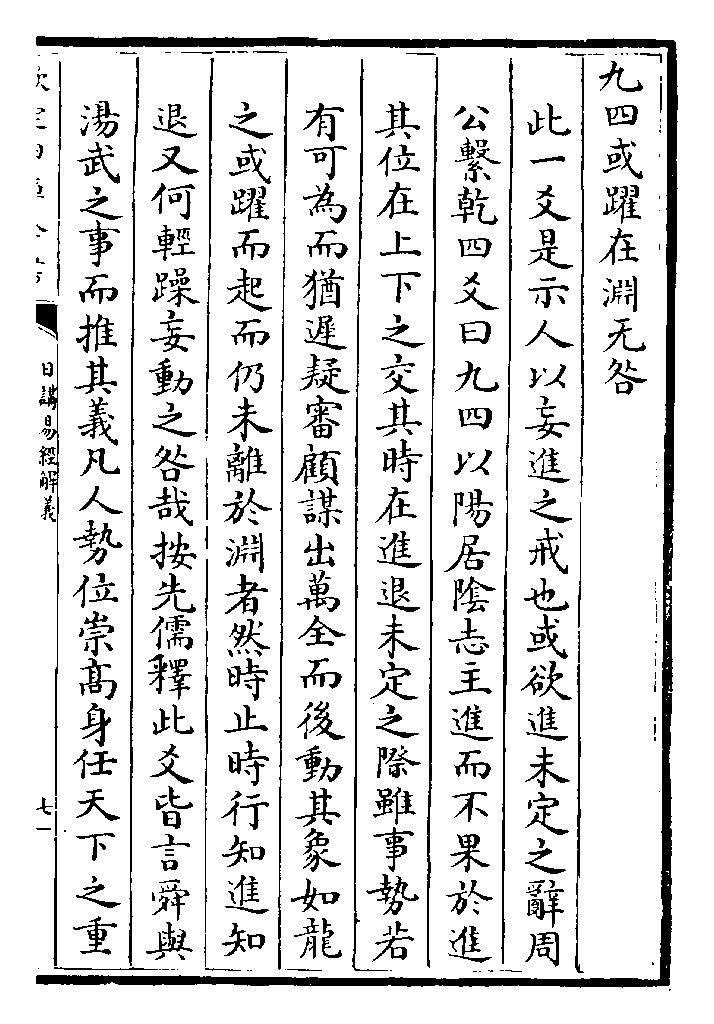 九四或躍在淵无咎
此一爻是示人以妄進之戒也或欲進未定之辭周
公繫乾四爻曰九四以陽居隂志主進而不果於進
其位在上下之交其時在進退未定之際雖事勢若
有可為而猶遲疑審顧謀出萬全而後動其象如龍
之或躍而起而仍未離於淵者然時止時行知進知
退又何輕躁妄動之咎哉按先儒釋此爻皆言舜與
湯武之事而推其義凡人勢位崇髙身任天下之重
日講易經解義